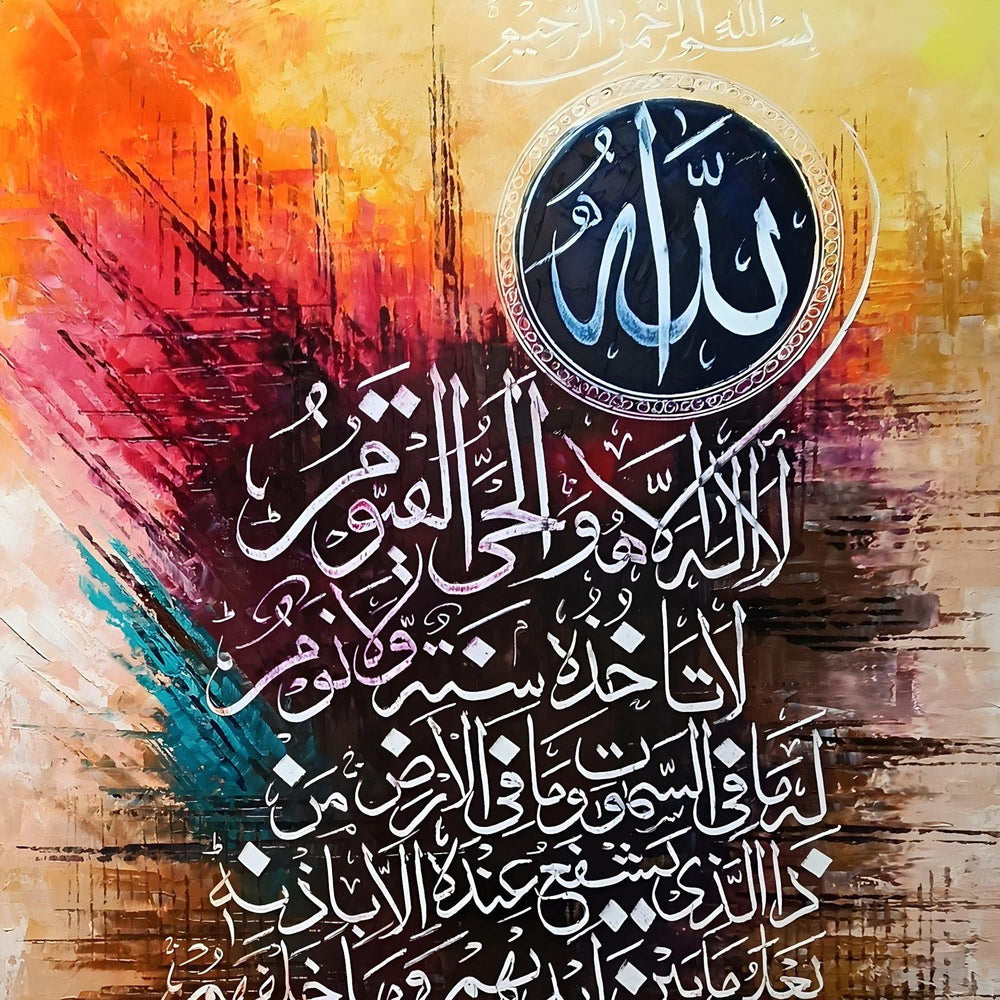 بسم الله الرحمن الرحيم
اللهُ
لَا إِلٰهَ إِلَّا هُوَ الْحَيُّ الْقَيُّومُ
لَا تَاخُذُهُ سِنَةٌ وَّلَا نَوْمٌ
لَهُ مَا فِي السَّمٰوٰتِ وَمَا فِي الْاَرْضِ مَنْ
ذَا الَّذِي يَشْفَعُ عِنْدَهُ اِلَّا بِاِذْنِهٖ
يَعْلَمُ مَا بَيْنَ اَيْدِيهِمْ وَمَا خَلْفَهُمْ